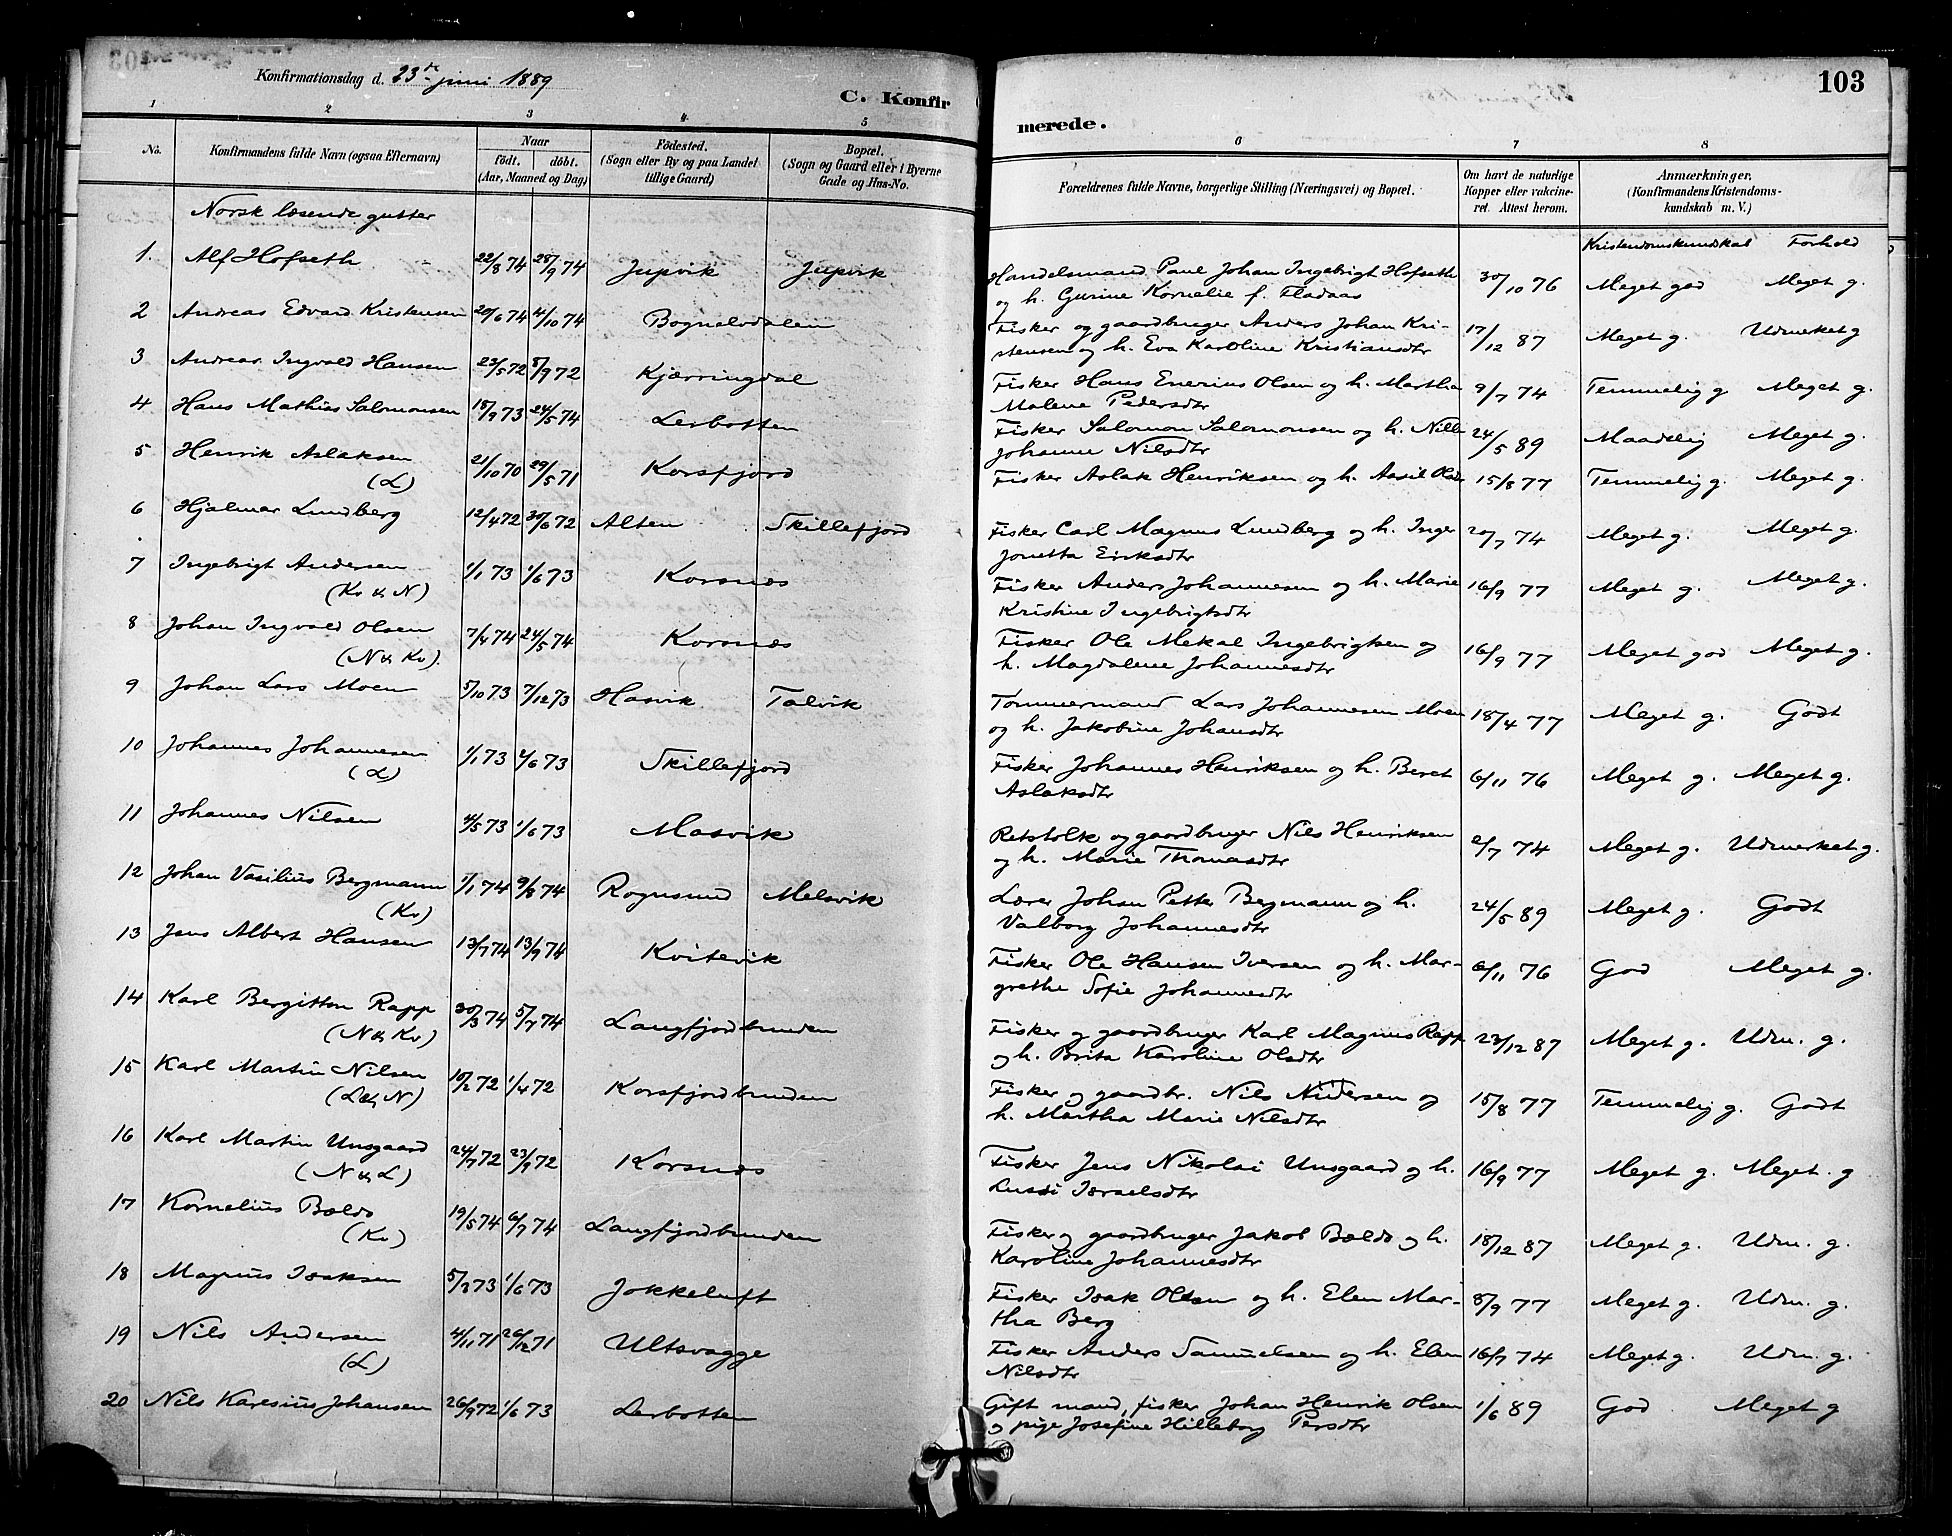 103
Konfirmationsdag d. 23de juni 1889
C. Konfirmerede.
1 2 3 4 5 6 7 8
No.
Konfirmandens fulde Navn (ogsaa Efternavn)
Naar
födt. döbt.
(Aar, Maaned og Dag)
Födested.
(Sogn eller By og paa Landet
tillige Gaard)
Bopæl.
(Sogn og Gaard eller i Byerne
Gade og Hus-No.
Forældrenes fulde Navne, borgerlige Stilling (Næringsvei) og Bopæl.
Om havt de naturlige
Kopper eller vakcine-
ret. Attest herom.
Anmærkninger,
(Konfirmandens Kristendoms-
kundskab m. V.)
Norsk læsende gutter
Kristendomskundskab Forhold
1. Alf Hofseth 22/8 74 28/9 74 Jupvik Jupvik Handelsmand Paul Johan Ingebrigt Hofseth 30/10 76 Meget god Meget g.
og h. Gurine Kornelie f. Fladaas
2 Andreas Edvard Kristensen 20/6 74 4/10 74 Bognelvdalen Fisker og gaardbruger Anders Johan Kri- 17/12 87 Meget g. Udmerket g
stensen og h. Eva Karoline Kristiansdtr
3 Andreas Ingvald Hansen 23/5 72 8/9 72 Kjærringdal Fisker Hans Enerius Olsen og h. Martha 9/7 74 Temmelig g Meget g.
Malene Pedersdtr
4 Hans Mathias Salomonsen 15/9 73 24/5 74 Lerbotten Fisker Salomon Salomonsen og h. Nille 24/5 89 Maadelig Meget g.
Johanne Nilsdtr
5 Henrik Aslaksen 21/10 70 29/5 71 Korsfjord Fisker Aslak Henriksen og h. Aasil Olsdr 15/8 77 Temmelig g. Meget g.
(L)
6 Hjalmar Lundberg 12/4 72 30/6 72 Alten Skillefjord Fisker Carl Magnus Lundberg og h. Inger 20/7 74 Meget g. Meget g.
Jonetta Eriksdtr
7 Ingebrigt Andersen 1/1 73 1/6 73 Korsnæs Fisker Anders Johannesen og h. Marie 16/9 77 Meget g. Meget g.
(Kv & N) Kristine Ingebrigtsdtr
8 Johan Ingvald Olsen 7/4 74 24/5 74 Korsnæs Fisker Ole Mekal Ingebrigtsen og 16/9 77 Meget god Meget g.
(N & Kv). h. Magdalene Johannesdtr
9 Johan Lars Moen 5/10 73 7/12 73 Hasvik Talvik Tømmermand Lars Johannesen Moen 18/4 77 Meget g. Godt
og h. Jakobine Johansdtr
10 Johannes Johannesen 1/1 73 1/6 73 Skillefjord Fisker Johannes Henriksen og h. Beret 6/11 76 Meget g. Meget g.
(L) Aslaksdtr
11 Johannes Nilsen 4/5 73 1/6 73 Masvik Retstolk og gaardbruger Nils Henriksen 2/7 74 Meget g. Udmerket g.
og h. Marie Thomasdtr
12 Johan Vasilius Bergmann 7/1 74 9/8 74 Rognsund Melsvik Lærer Johan Petter Bergmann og h. 24/5 89 Meget g. Godt
(Kv) Valborg Johannesdtr
13 Jens Albert Hansen 13/7 74 13/9 74 Kvitevik Fisker Ole Hansen Iversen og h. Mar- 6/11 76 God Meget g.
grethe Sofie Johannesdtr
14 Karl Bergitton Rapp 30/3 74 5/7 74 Langfjordbunden Fisker g gaardbruger Karl Magnus Rapp 23/12 87 Meget g. Udm. g.
(N & Kv) og h. Brita Karoline Olsdtr
15 Karl Martin Nilsen 10/2 72 1/4 72 Korsfjordbunden Fisker g gaardbr. Nils Andersen og 15/8 77 Temmelig g. Godt
(L & N) h. Martha Marie Nilsdtr
16 Karl Martin Unsgaard 24/7 72 23/9 72 Korsnæs Fisker Jens Nikolai Unsgaard og h. 16/9 77 Meget g. Meget g
(N & L) Lussi Israelsdtr
17 Kornelius Bælds 19/5 74 6/7 74 Langfjordbunden Fisker g gaardbruger Jakob Bælds g h. 18/12 87 Meget g. Udm. g.
(Kv) Karoline Johannesdtr
18 Magnus Isaksen 5/3 73 1/6 73 Jokkeluft Fisker Isak Olsen og h. Elen Mar- 8/9 77 Meget g. Udm. g.
tha Berg
19 Nils Andersen 4/11 71 26/12 71 Ultsvagge Fisker Anders Samuelsen og h. Elen 16/7 74 Meget g. Udm. g.
(L) Nilsdtr
20 Nils Karesius Johansen 26/9 72 1/6 73 Lerbotten Gift mand, fisker Johan Henrik Olsen 1/6 89 God Meget g
g pige Josefine Hilleborg Persdtr